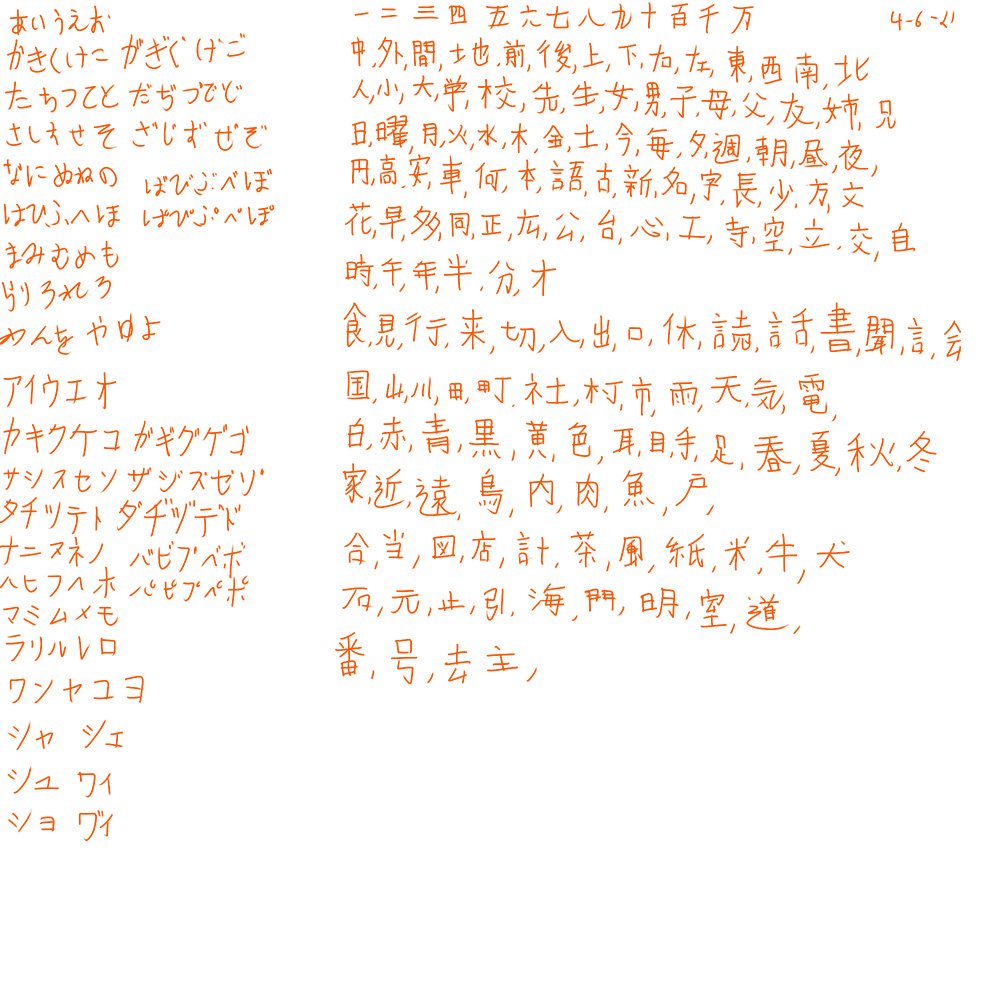 あいうえお
かきくけこ がぎぐげご
たちつてと だぢづでど
さしすせそ ざじずぜぞ
なにぬねの ばびぶべぼ
はひふへほ ぱぴぷぺぽ
まみむめも
らりるれろ
わんを やゆよ
アイウエオ
カキクケコ ガギグゲゴ
サシスセソ ザジズゼゾ
タチツテト ダヂヅデド
ナニヌネノ バビブベボ
ハヒフヘホ パピプペポ
マミムメモ
ラリルレロ
ワンヤユヨ
シャ シェ
シュ ワィ
ショ ヴィ
一二三四五六七八九十百千万
4-6-21
中,外,間,土也,前,後,上,下,右,左,東,西,南,北
人,小,大,学,校,先,生,女,男,子,母,父,友,姉,兄
日,曜,月,火,水,木,金,土,今,毎,夕,週,朝,昼,夜,
円,高,安,車,何,本,語,古,新,名,字,長,少,方,文
花,早,多,同,正,広,公,台,心,工,寺,空,立,交,自
時,午,年,半,分,才
食,見,行,来,切,入,出,口,休,読,話,書,聞,言,会
国,山,川,田,町,社,村,市,雨,天,気,電,
白,赤,青,黒,黄,色,耳,目,手,足,春,夏,秋,冬
家,近,遠,鳥,内,肉,魚,戸,
合,当,図,店,計,茶,風,紙,米,牛,犬
石,元,止,引,海,門,明,室,道,
番,号,去,主,